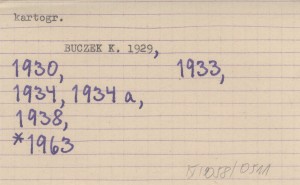 kartogr.
BUCZEK K. 1929,
1930, 1933,
1934, 1934 a,
1938,
*1963